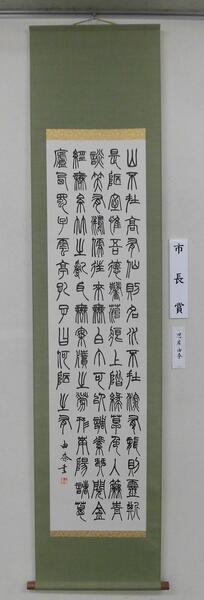 山不在高有仙則名水不在深有龍則靈斯
是陋室惟吾德馨苔痕上階綠草色入簾青
談笑有鴻儒往來無白丁可以調素琴閱金
經無絲竹之亂耳無案牘之勞形南陽諸葛
廬西蜀子雲亭孔子曰何陋之有
市長賞